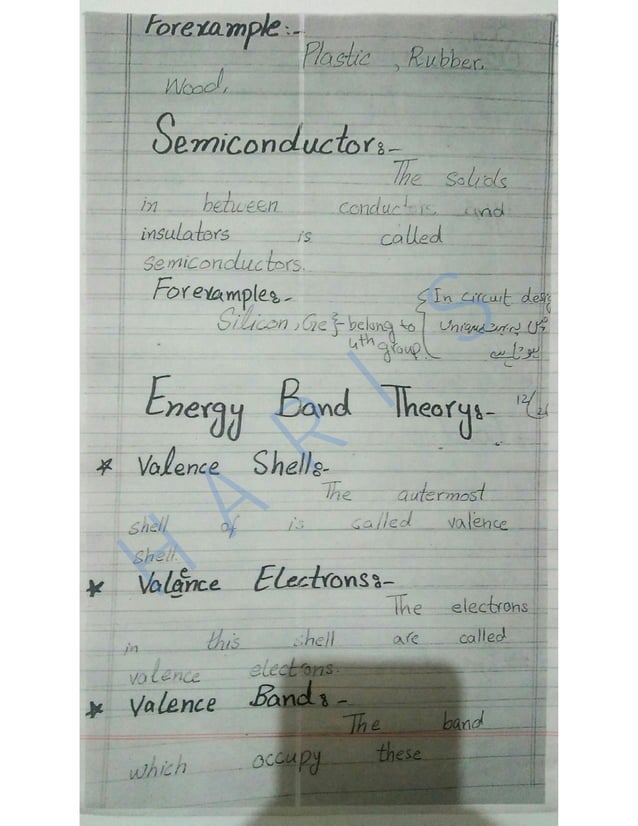 Forexample:-
Plastic, Rubber.
Wood,
Semiconductor:-
The solids
in between conductors and
insulators is called
semiconductors.
Forexample:-
Silicon, Ge}-belong to 4th group.
{In circuit desig
Energy Band Theory:-
12/
* Valence Shell:-
The autermost
shell of is called valence
shell.
* Valence Electrons:-
The electrons
in this shell are called
valence electrons.
* Valence Band:-
The band
which occupy these
HARIS